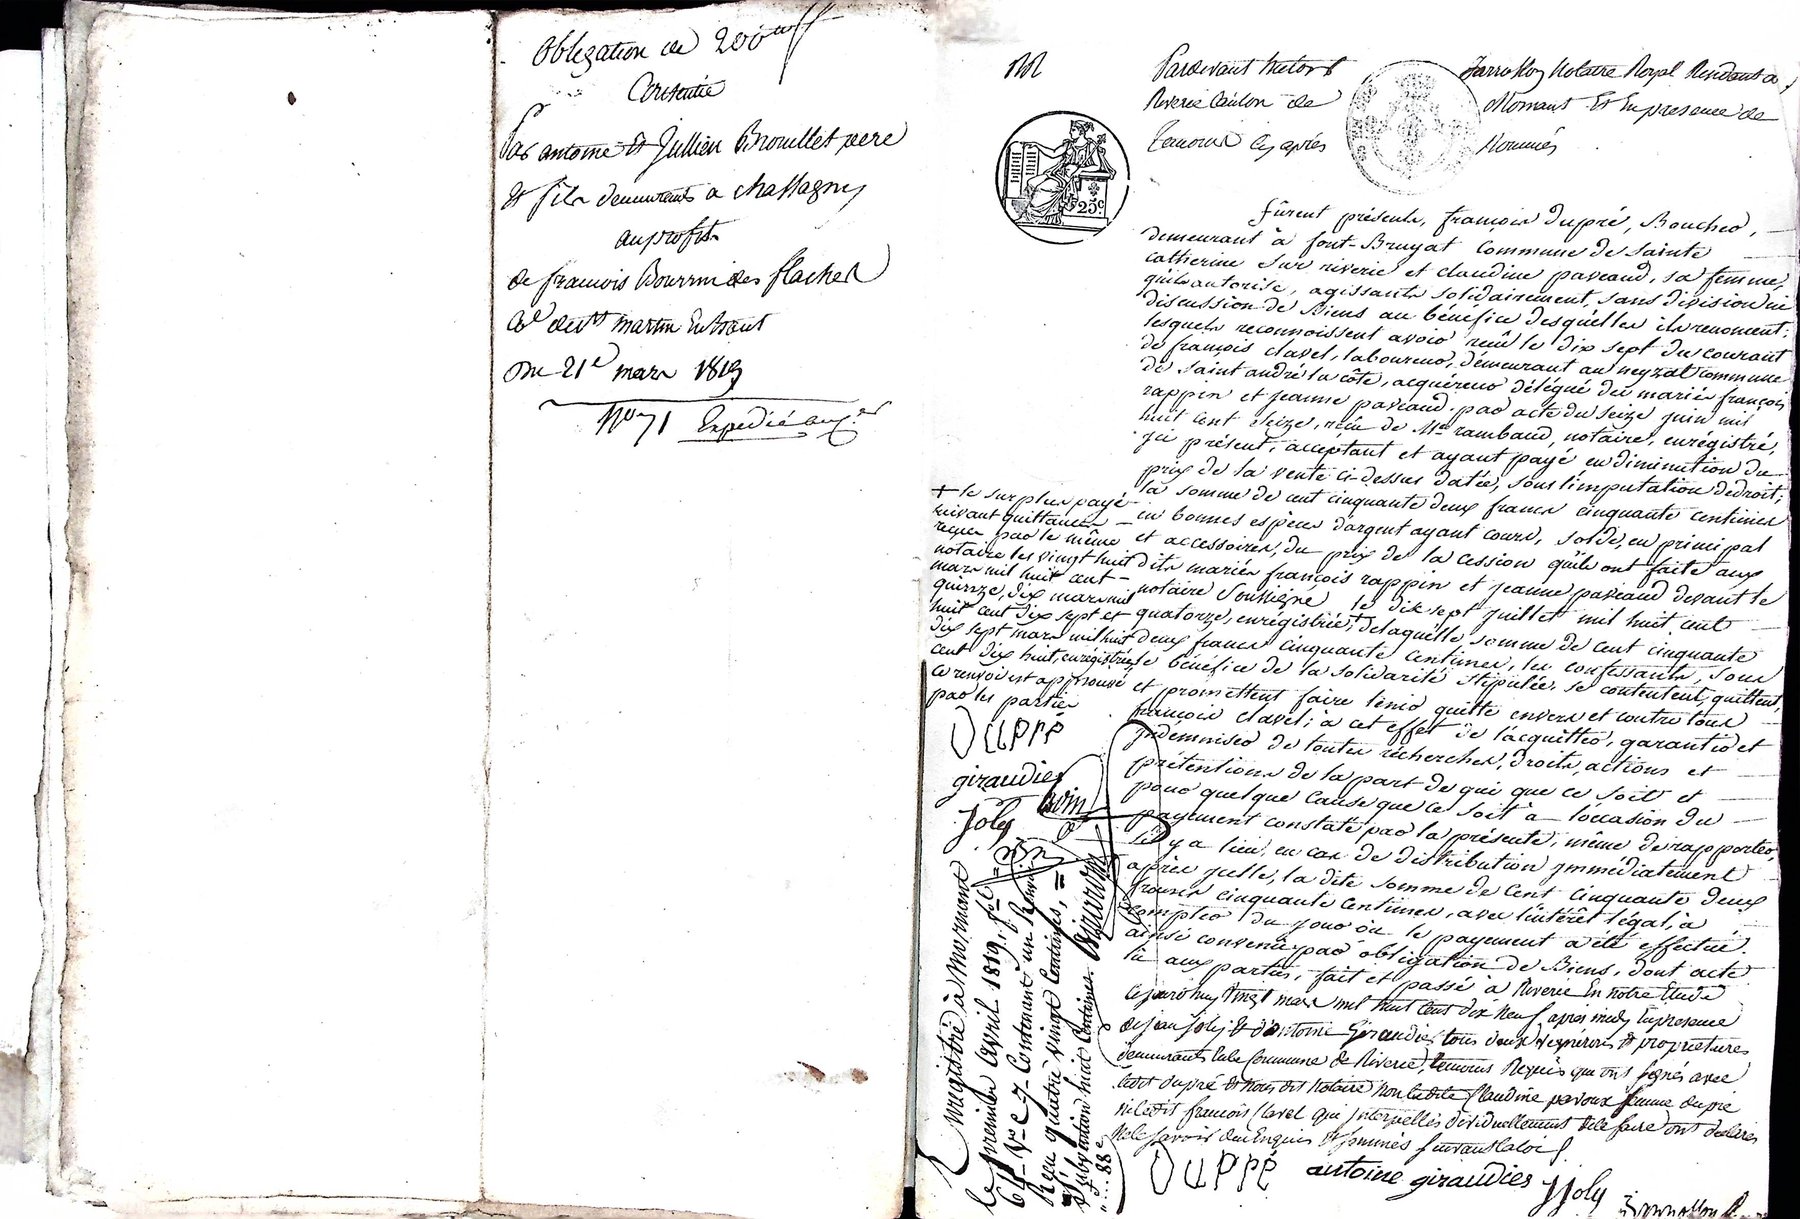 Obligation de 200 ff
Consentie
Par antoine et Jullien Brouillet pere
et fils demeurants a chassagny
au profit
de francois Bourrin des flaches
Ce de St martin En haut
Du 21e mars 1819
No 71 Expedié aux
Pardevant Farrossay Notaire Royal Résidant a
Riverie Canton de Mornant Et En presence de
Temoins Cy après Nommés
25c
fûrent présents, françois dupré, Boucher,
demeurant à font-Bruyat commune de sainte
catherine sur riverie et claudine paveaud, sa femme,
qu'il autorise, agissants solidairement, sans division ni
discussion de Biens au bénéfice desquelles ils renoncent;
lesquels reconnoissent avoir reçû le dix sept du courant
de françois clavel, laboureur, demeurant au neyzat commune
de saint andré la côte, acquéreur délégué des mariés françois
rappin et jeanne paveaud par acte du seize juin mil
huit cent seize, reçu de Me rambaud, notaire, enrégistré,
ici présent, acceptant et ayant payé en diminution du
prix de la vente ci-dessus datée, sous l'imputation de droit;
la somme de cent cinquante deux francs cinquante centimes
en bonnes espèces d'argent ayant cours, solde, en principal
et accessoires, du prix de la cession qu'ils ont faite aux
dits mariés françois rappin et jeanne paveaud devant le
notaire soussigné le dix sept juillet mil huit cent
quatorze, enrégistrée + de laquelle somme de cent cinquante
deux francs cinquante centimes, les confessants, sous
le bénéfice de la solidarité stipulée, se contentent, quittent,
et promettent faire tenir quitte envers et contre tous
françois clavel; à cet effet de l'acquitter, garantir et
indemniser de toutes recherches, droits, actions et
prétentions de la part de qui que ce soit et
pour quelque cause que ce soit à l'occasion du
payement constaté par la présente, même de rapporter,
s'il y a lieu, en cas de distribution immédiatement
après icelle, la dite somme de cent cinquante deux
francs cinquante centimes, avec l'intérêt légal, à
compter du jour où le payement a été effectué.
ainsi convenu, par obligation de Biens, dont acte
lu aux parties, fait et passé à Riverie En notre Etude
Cejourd'huy vingt mars mil huit Cent dix Neuf apres midy En presence
de jean joly et d'antoine Giraudier tous deux proprietaires
demeurants En la Commune de Riverie, temoins Requis qui ont signés avec
ledit dupré et Nous dit Notaire Non ladite Claudine paveaux femme dupré
ni ledit francois Clavel qui Interpellés individuellement de le faire ont déclarés
Ne le savoir de ce Enquis et sommés suivant la loi
DUPPÉ antoine giraudier J Joly
+ le surplus payé
suivant quittances
reçues par le même
notaire les vingt huit
mars mil huit cent
quinze, dix mars mil
huit cent dix sept et
dix sept mars mil huit
cent dix huit, enrégistrées
ce renvoi est approuvé
par les parties
DUPPÉ
giraudier
Joly
Enregistré à Mornant
le premier avril 1819, fo
6 Vo C 7 Contenant un Renvoi
Reçu quatre vingt Centimes,
subvention huit Centimes.
88c